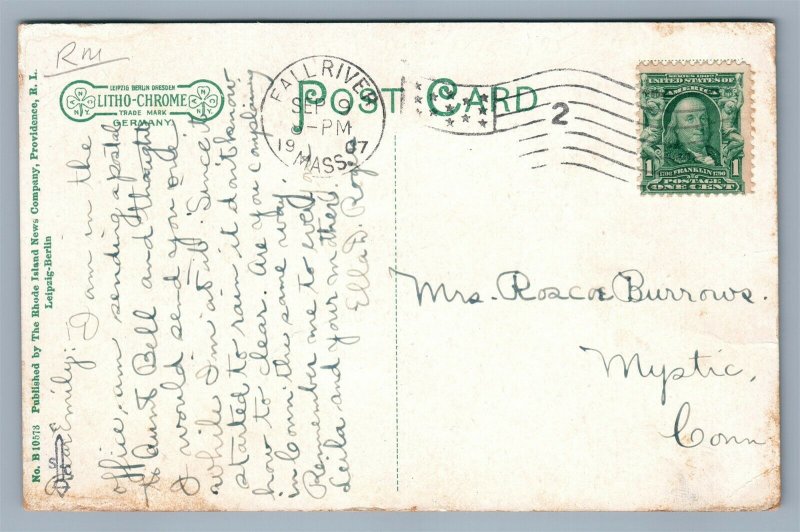 RM
LEIPZIG BERLIN DRESDEN
LITHO-CHROME
TRADE MARK
GERMANY
N Y D N
FALL RIVER
SEP 9
-PM
1907
MASS.
POST CARD
2
SERIES 1902
UNITED STATES OF
AMERICA
1 1
1706 FRANKLIN 1790
POSTAGE
ONE CENT
No. B 10573 Published by The Rhode Island News Company, Providence, R. I.
Leipzig-Berlin
Emily: I am in the
office, am sending a postal
to Aunt Bell and thought
I would send you one
while I'm at it. Since it
started to rain it don't know
how to clear. Are you complaining
in Conn the same way.
Remember me to every
Leila and your mother.
Ella D. Rogers
Mrs. Roscoe Burrows.
Mystic,
Conn